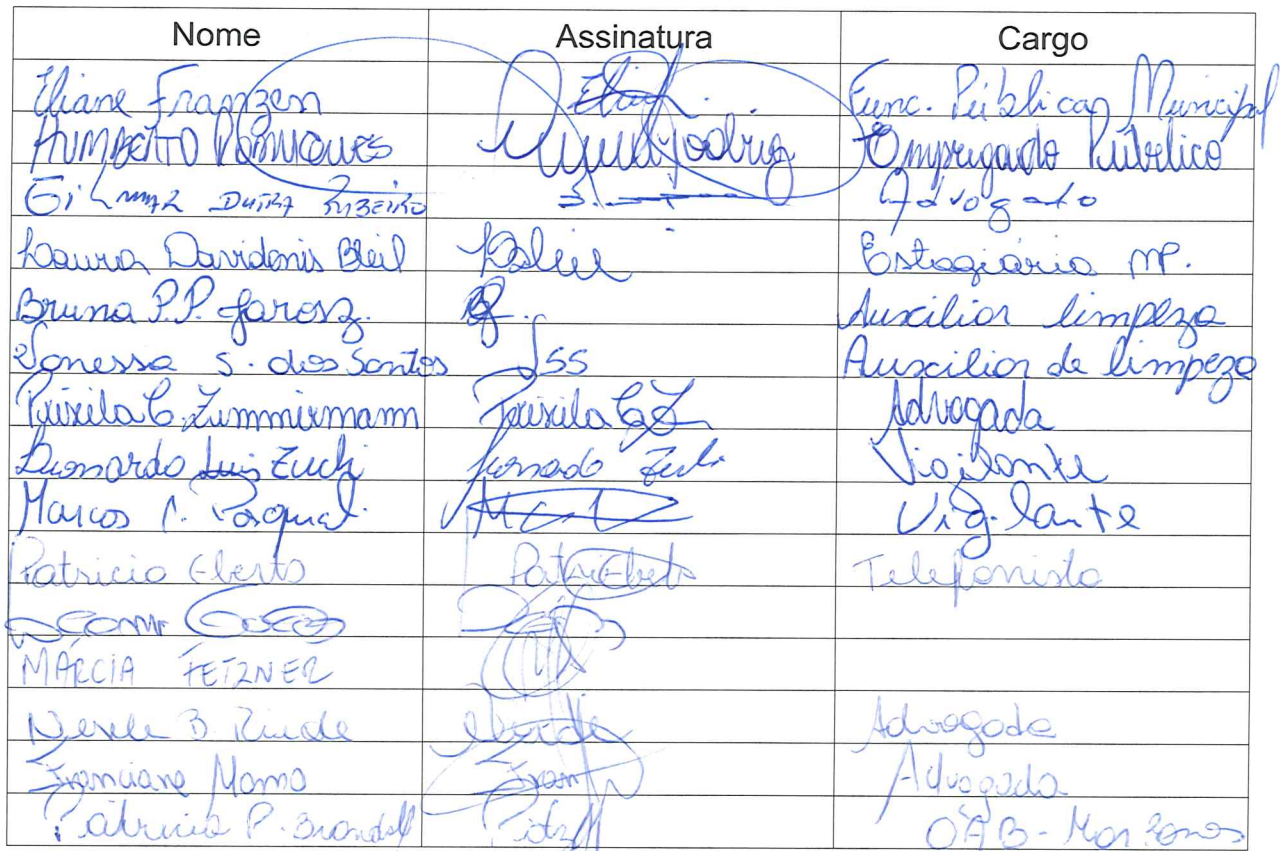 Nome Assinatura Cargo
Eliane Franzen Func. Pública Municipal
HUMBERTO RODRIGUES Rodrig Empregado Público
Gilmar DUTRA RIBEIRO Advogado
Laura Davidonis Bleil Estagiária MP.
Bruna P.P. Jarosz. Auxiliar limpeza
Vanessa S. dos Santos VSS Auxiliar de limpeza
Prixila C. Zummirmann Prixila CZ Advogada
Leonardo Luis Zuchi Leonardo Zuchi Vigilante
Marcos C. Pasqual Vigilante
Patricia Eberts Patri Eberts Telefonista
MÁRCIA FETZNER
B. Advogada
Franciane Momo Fran Advogada
Patricia P. OAB - Mar